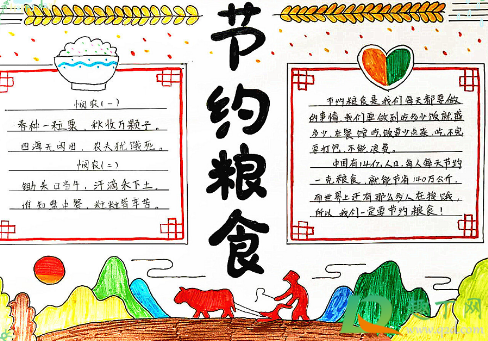 节约粮食
悯农(一)
春种一粒粟,秋收万颗子。
四海无闲田,农夫犹饿死。
悯农(二)
锄禾日当午,汗滴禾下土。
谁知盘中餐,粒粒皆辛苦。
节约粮食是我们每天都要做
的事情,我们要做到吃多少饭就盛
多少,在餐馆吃饭要少点菜,吃不完
要打包,不能浪费。
中国有14亿人口,每人每天节约
一克粮食,就能节省140万公斤,
而世界上还有那么多人在挨饿,
所以我们一定要节约粮食!
www.qqd.com